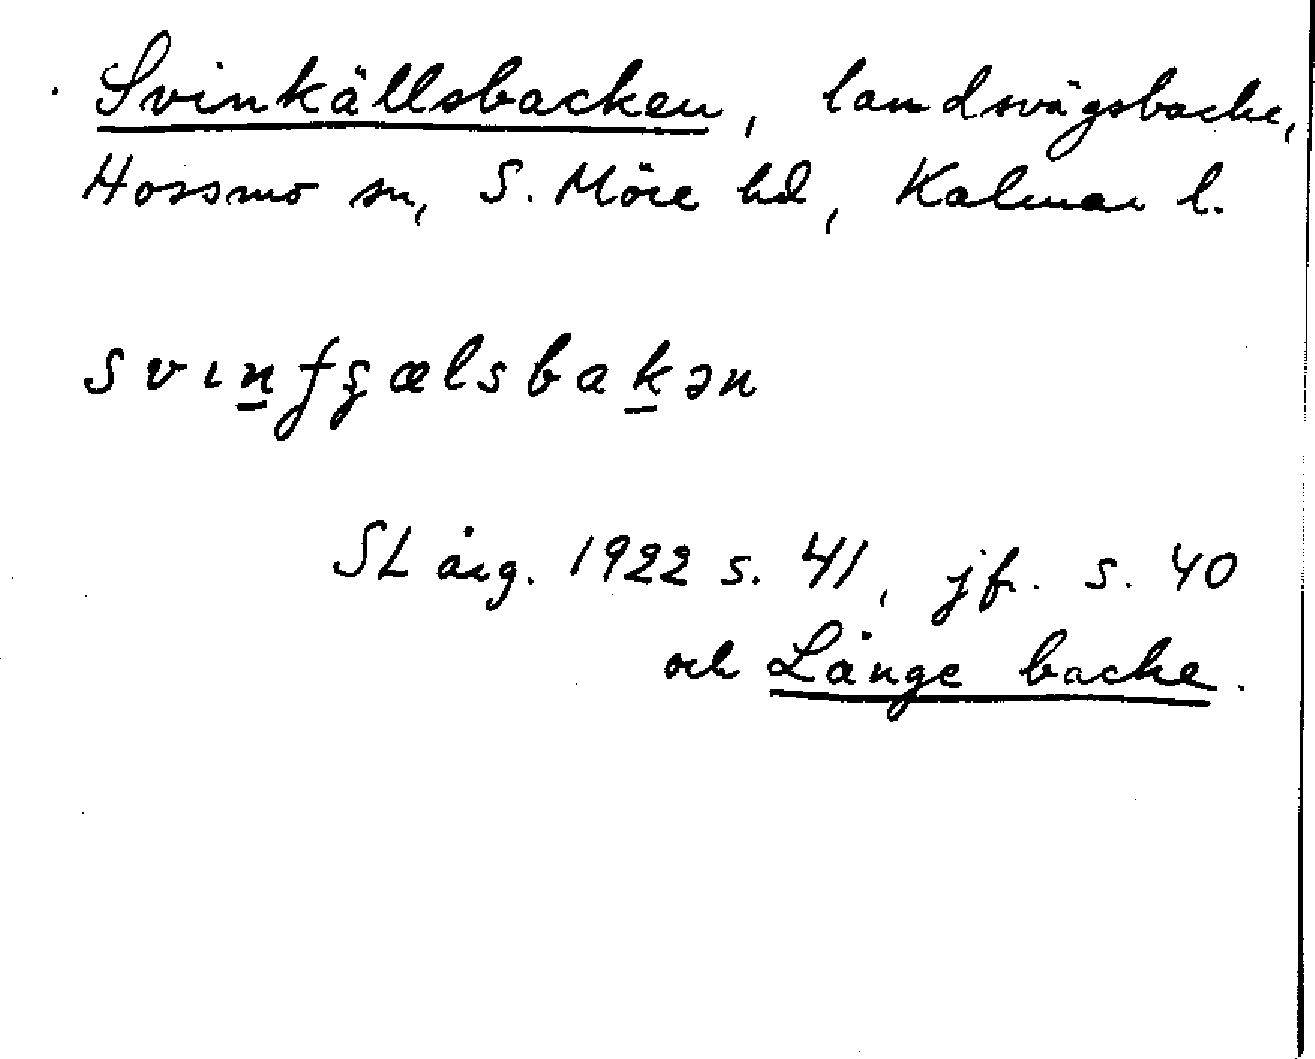 Svinkällsbacken, landsvägsbacke,
Hossmo sn, S. Möre hd, Kalmar l.
SL årg. 1922 s. 41, jfr. s. 40
och Långe backe.